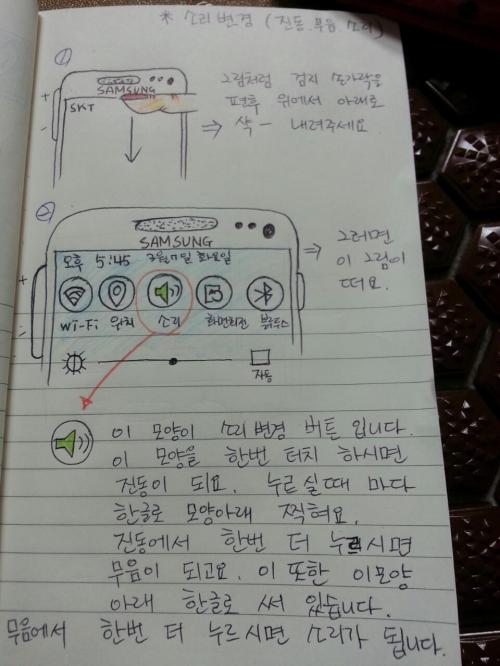 * 소리변경 (진동.무음.소리)
①
SAMSUNG
SKT
+
-
그림처럼 검지 손가락을
편후 위에서 아래로
⇒ 샥 - 내려주세요
②
SAMSUNG
오후 5:45 7월11일 화요일
Wi-Fi 위치 소리 화면회전 블루투스
자동
+
-
⇒ 그러면
이 그림이
떠요.
이 모양이 소리변경 버튼 입니다.
이 모양을 한번 터치 하시면
진동이 되요. 누르실때 마다
한글로 모양아래 찍혀요.
진동에서 한번 더 누르시면
무음이 되고요. 이 또한 이모양
아래 한글로 써 있습니다.
무음에서 한번 더 누르시면 소리가 됩니다.